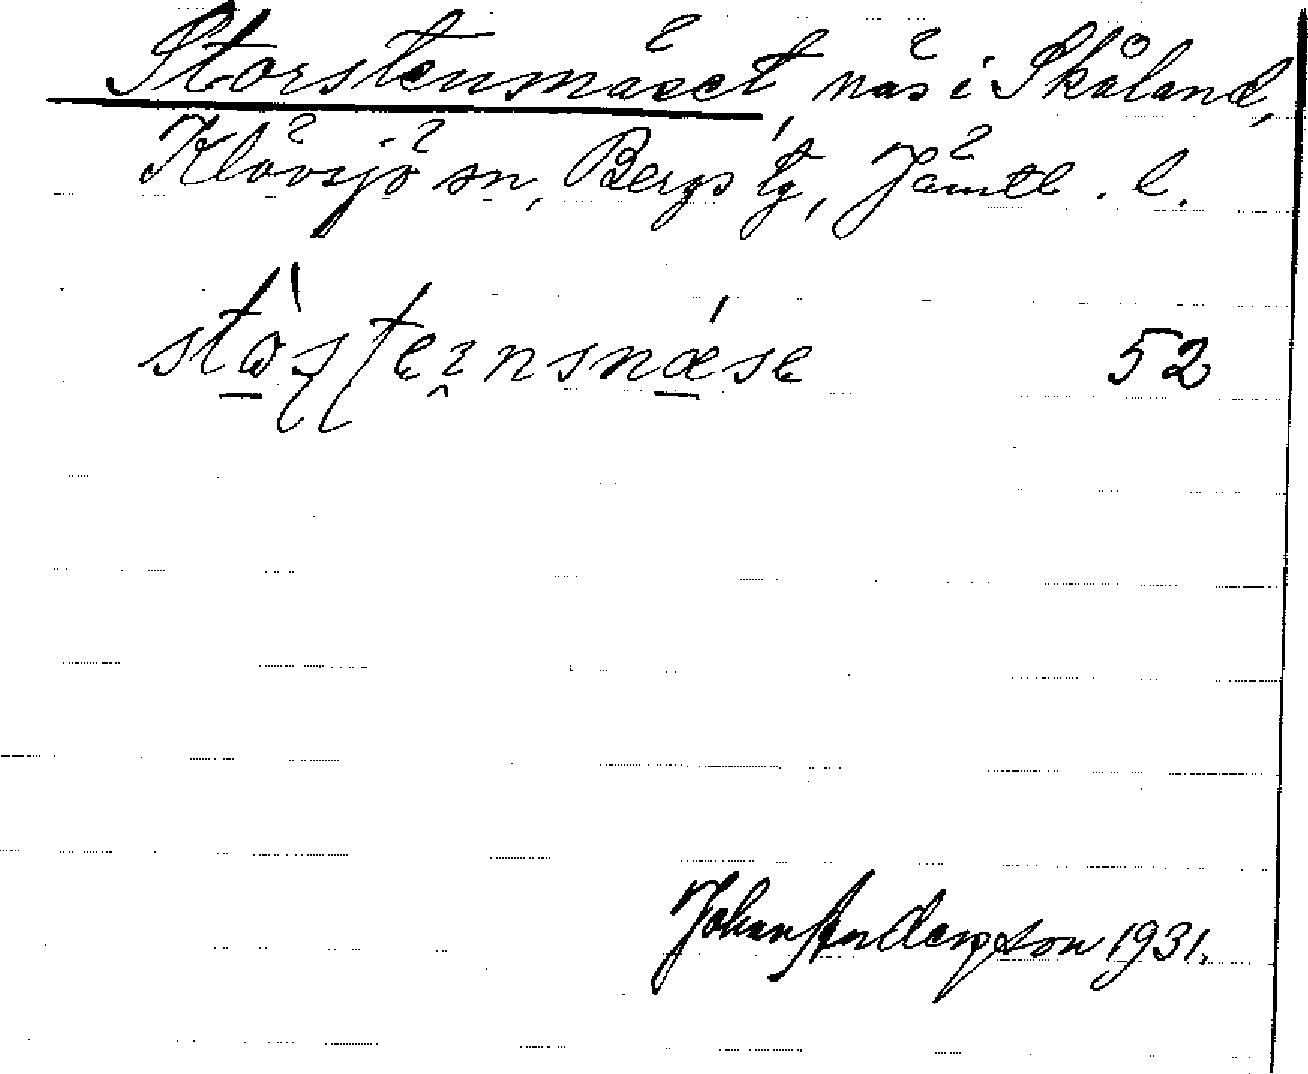 Storstensnäset, näs i Skåland,
Klövsjö sn, Bergs tg, Jämtl. l.
52
Johan Anderson 1931.